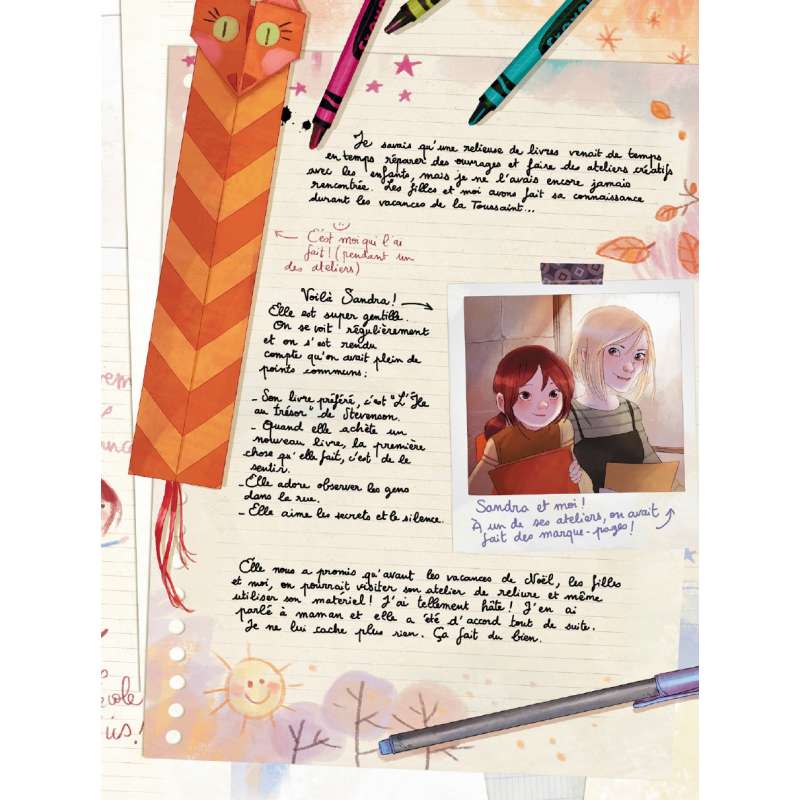 Je savais qu'une relieuse de livres venait de temps
en temps réparer des ouvrages et faire des ateliers créatifs
avec les enfants, mais je ne l'avais encore jamais
rencontrée. Les filles et moi avons fait sa connaissance
durant les vacances de la Toussaint...
← C'est moi qui l'ai
fait ! (pendant un
des ateliers)
Voilà Sandra ! →
Elle est super gentille.
On se voit régulièrement
et on s'est rendu
compte qu'on avait plein de
points communs :
- Son livre préféré, c'est "L'Île
au trésor" de Stevenson.
- Quand elle achète un
nouveau livre, la première
chose qu'elle fait, c'est de le
sentir.
- Elle adore observer les gens
dans la rue.
- Elle aime les secrets et le silence.
Sandra et moi !
À un de ses ateliers, on avait
fait des marque-pages !
Elle nous a promis qu'avant les vacances de Noël, les filles
et moi, on pourrait visiter son atelier de reliure et même
utiliser son matériel ! J'ai tellement hâte ! J'en ai
parlé à maman et elle a été d'accord tout de suite.
Je ne lui cache plus rien. Ça fait du bien.